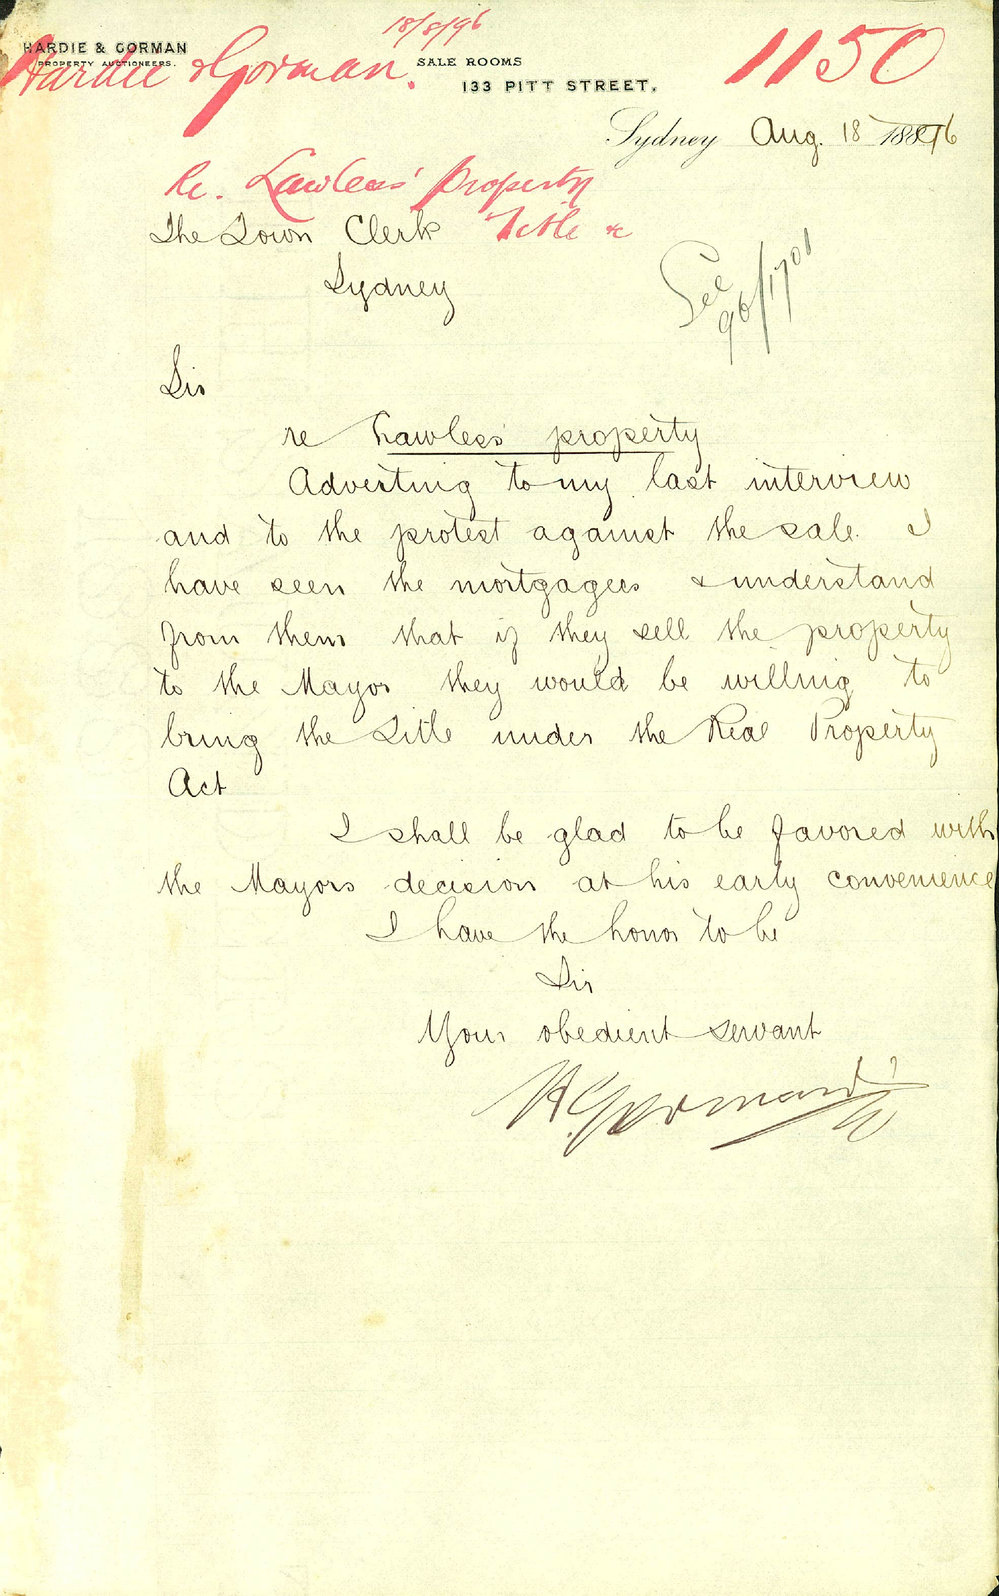 18/8/96
HARDIE & GORMAN
PROPERTY AUCTIONEERS.
Hardie & Gorman.
SALE ROOMS
133 PITT STREET,
1150
Sydney Aug. 18 1896
Re. Lawless' Property
Title &c
The Town Clerk
Sydney
See
96/1701
Sir
re Lawless' property
Adverting to my last interview
and to the protest against the sale. I
have seen the mortgagees & understand
from them that if they sell the property
to the Mayor they would be willing to
bring the Title under the Real Property
Act
I shall be glad to be favored with
the Mayors decision at his early convenience
I have the honor to be
Sir
Your obedient servant
H Gorman